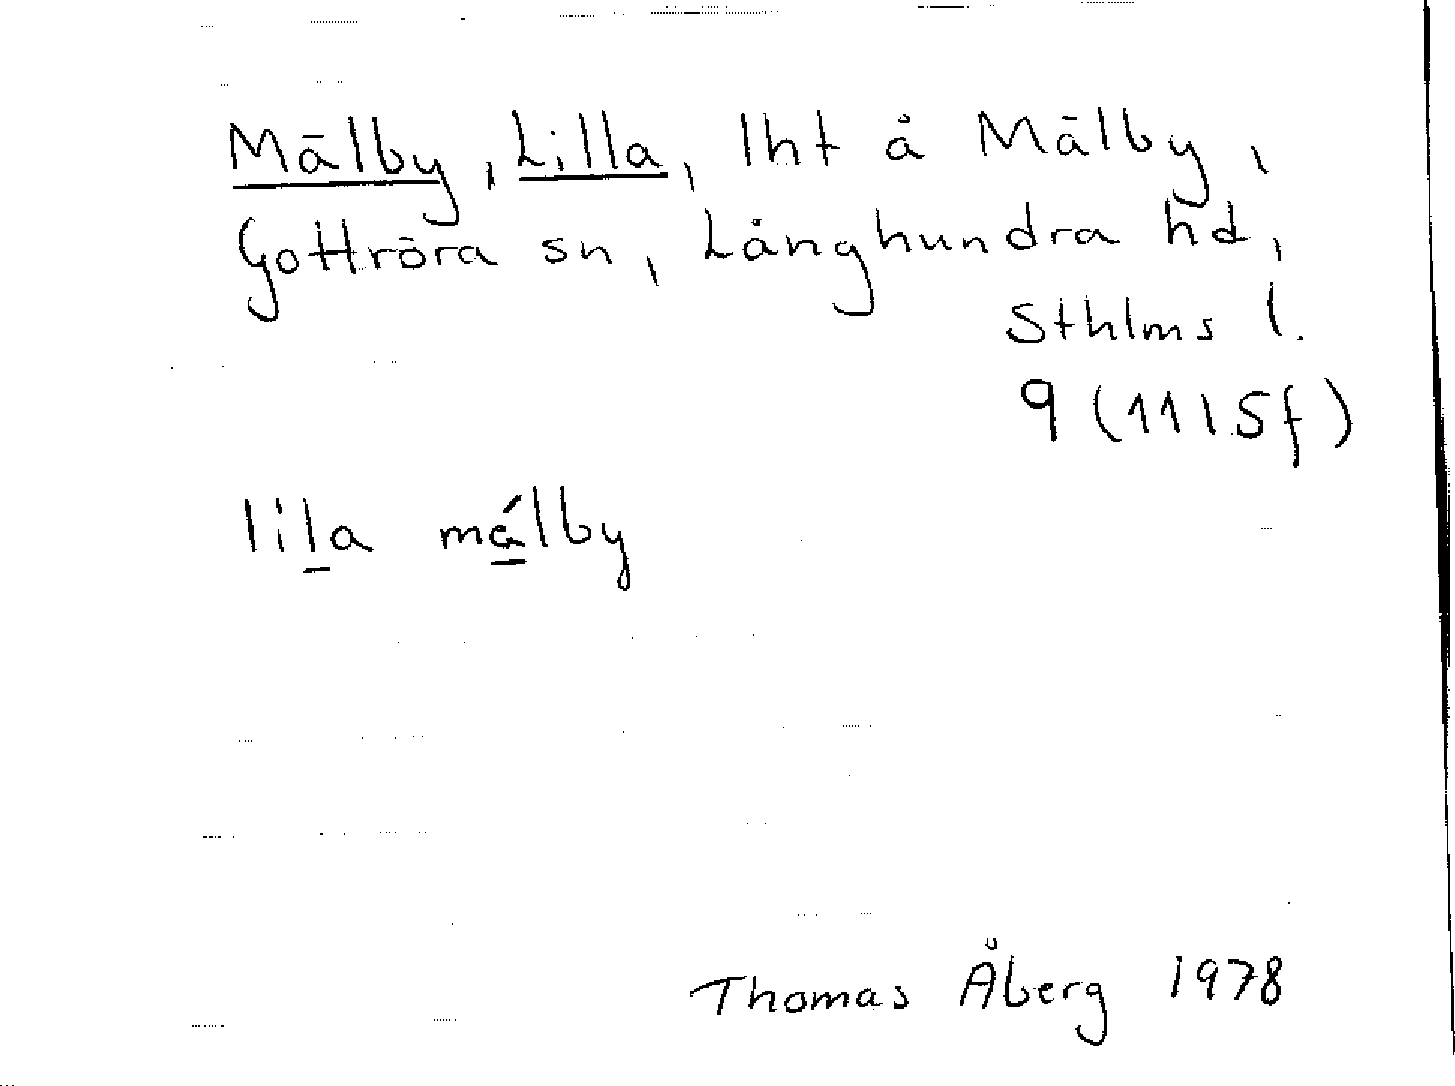 Mälby, Lilla, lht å Mälby,
Gottröra sn, Långhundra hd,
Sthlms l.
9 (11ISf)
lila málby
Thomas Åberg 1978